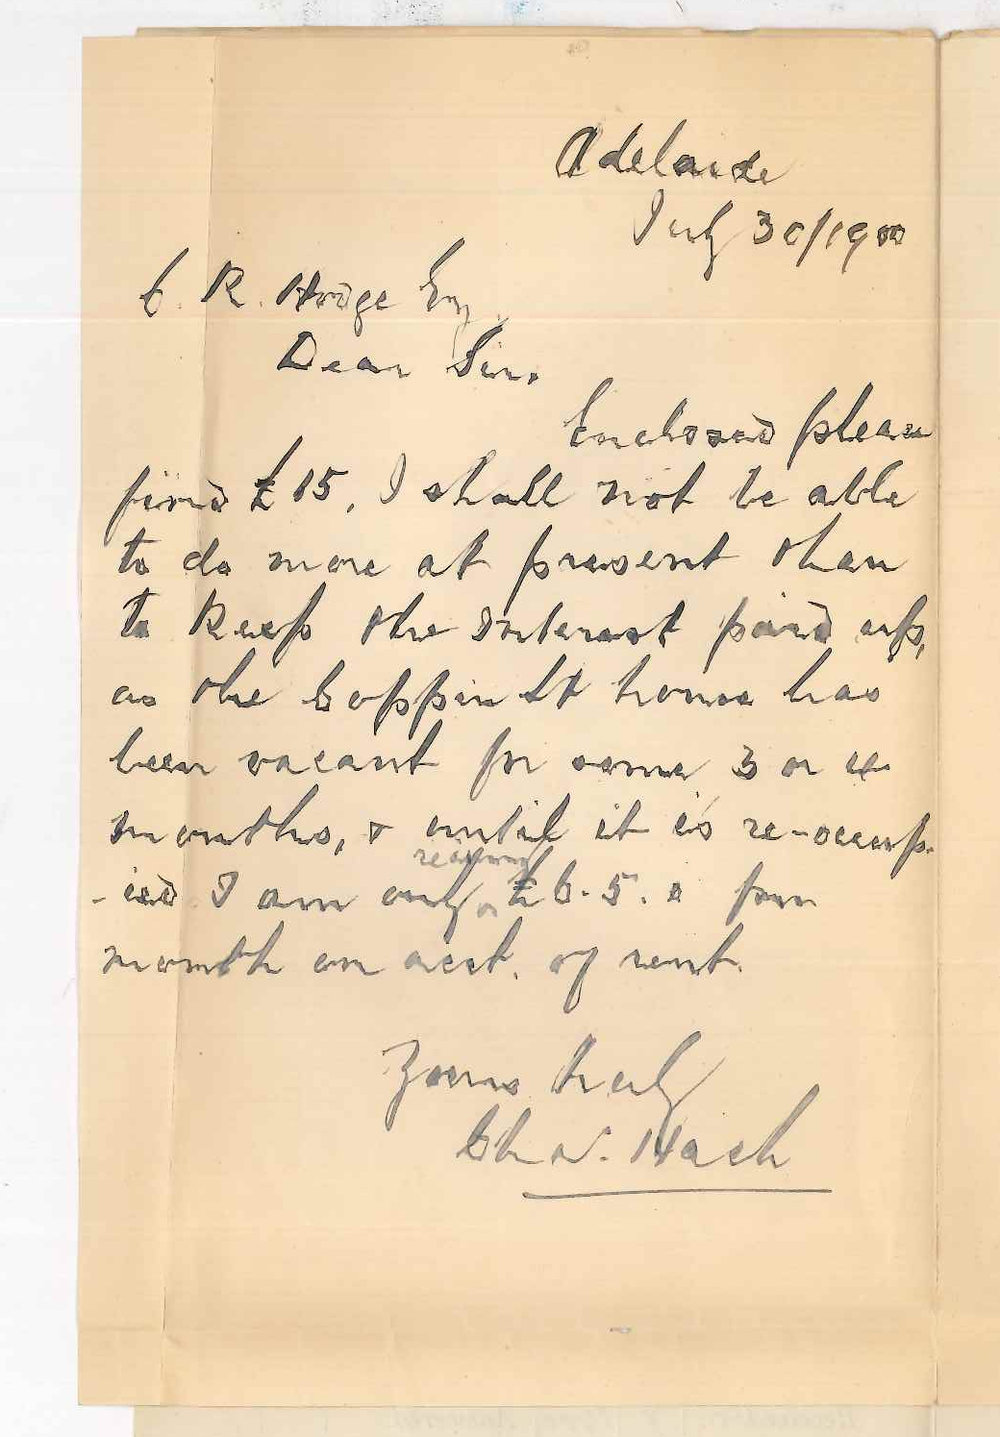 Adelaide
July 30/1900
C. R. Hodge Esq.
Dear Sir.
Enclosed please
find £15, I shall not be able
to do more at present than
to keep the interest paid up,
as the Coppin St house has
been vacant for some 3 or 4
months, & until it is re-occup-
-ied I am only receiving £6.5.0 per
month on acct. of rent.
Yours truly
Chas. Hach